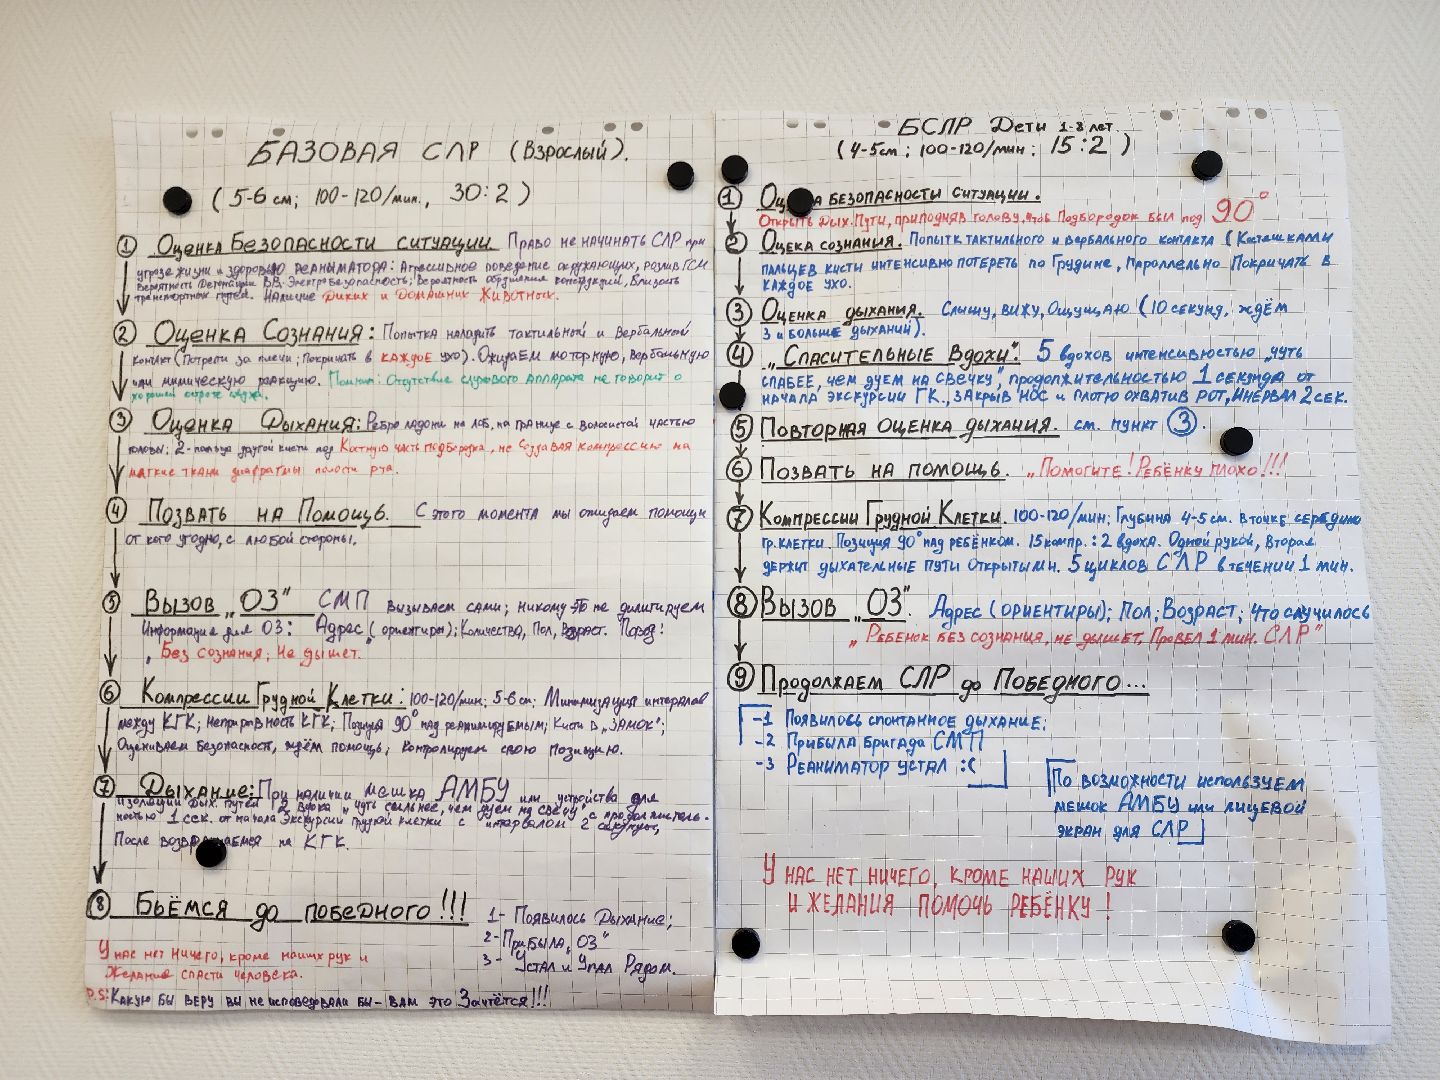 БАЗОВАЯ СЛР (Взрослый).
(5-6 см; 100-120/мин., 30:2)
1 Оценка Безопасности ситуации Право не начинать СЛР при
угрозе жизни и здоровью реаниматора: Агрессивное поведение окружающих, розлив ГСМ
Вероятность детонации ВВ. Электробезопасность; Вероятность обрушения конструкций, Близость
транспортных путей. Наличие Диких и Домашних Животных.
2 Оценка Сознания: Попытка наладить тактильный и вербальный
контакт (Потрепи за плечи; Покричать в КАЖДОЕ ухо). Ожидаем моторную, вербальную
или мимическую реакцию. Помним: Отсутствие слухового аппарата не говорит о
хорошей остроте слуха.
3 Оценка Дыхания: Ребро ладони на лоб, на границе с волосистой частью
головы: 2 пальца другой кисти под Костную часть подбородка, не создавая компрессию на
мягкие ткани диафрагмы полости рта.
4 Позвать на Помощь. С этого момента мы ожидаем помощи
от кого угодно, с любой стороны.
5 Вызов „03" СМП Вызываем сами; никому это не делигируем
Информация для 03: Адрес (ориентиры); Количество, Пол, Возраст. Повод:
„Без сознания; Не дышет."
6 Компрессии Грудной Клетки: 100-120/мин; 5-6 см; Минимизация интервалов
между КГК; Непрерывность КГК; Позиция 90° над реанимируемым; Кисти в „ЗАМОК";
Оцениваем безопасность, ждём помощь, контролируем свою позицию.
7 Дыхание: При наличии мешка АМБУ или устройства для
изоляции дых. путей 2 вдоха „чуть сильнее, чем дуем на свечу" с продолжитель-
ностью 1 сек. от начала Экскурсии грудной клетки с интервалом 2 секунды,
После возвращаемся на КГК.
8 Бьёмся до победного!!!
1- Появилось Дыхание;
2- Прибыла „03"
3- Устал и Упал Рядом.
У нас нет ничего, кроме наших рук и
Желание спасти человека.
P.S: Какую бы веру вы не исповедовали бы - вам это Зачтётся!!!
БСЛР Дети 1-8 лет.
(4-5 см; 100-120/мин; 15:2)
1 Оценка БЕЗОПАСНОСТИ СИТУАЦИИ.
Открыть дых. пути, приподняв голову, чтоб Подбородок был под 90°
2 Оцека сознания. Попытк тактильного и вербального контакта (Косташками
пальцев кисти интенсивно потереть по Грудине, Пароллельно Покричать в
каждое ухо.
3 Оценка дыхания. Слышу, вижу, ощущаю (10 секунд, ждём
3 и больше дыханий).
4 „Спасительные Вдохи". 5 вдохов интенсивностью „чуть
слабее, чем дуем на свечку", продолжительностью 1 секунда от
начала экскурсии ГК., закрыв нос и плотно охватив рот, инервал 2 сек.
5 Повторная оценка дыхания. см. пункт 3.
6 Позвать на помощь. „Помогите! Ребёнку плохо!!!
7 Компрессии Грудной Клетки. 100-120/мин; Глубина 4-5 см. в точке середина
гр.клетки. Позиция 90° над ребёнком. 15 компр.: 2 вдоха. Одной рукой, Вторая
держит дыхательные пути открытыми. 5 циклов СЛР в течении 1 мин.
8 Вызов „03". Адрес (ориентиры); Пол; Возраст; Что случилось
„Ребенок без сознания, не дышет, Провел 1 мин. СЛР"
9 Продолжаем СЛР до Победного...
-1 Появилось спонтанное дыхание;
-2 Прибыла бригада СМП
-3 Реаниматор устал :(
По возможности используем
мешок АМБУ или лицевой
экран для СЛР
У нас нет ничего, кроме наших рук
и желания помочь ребёнку!